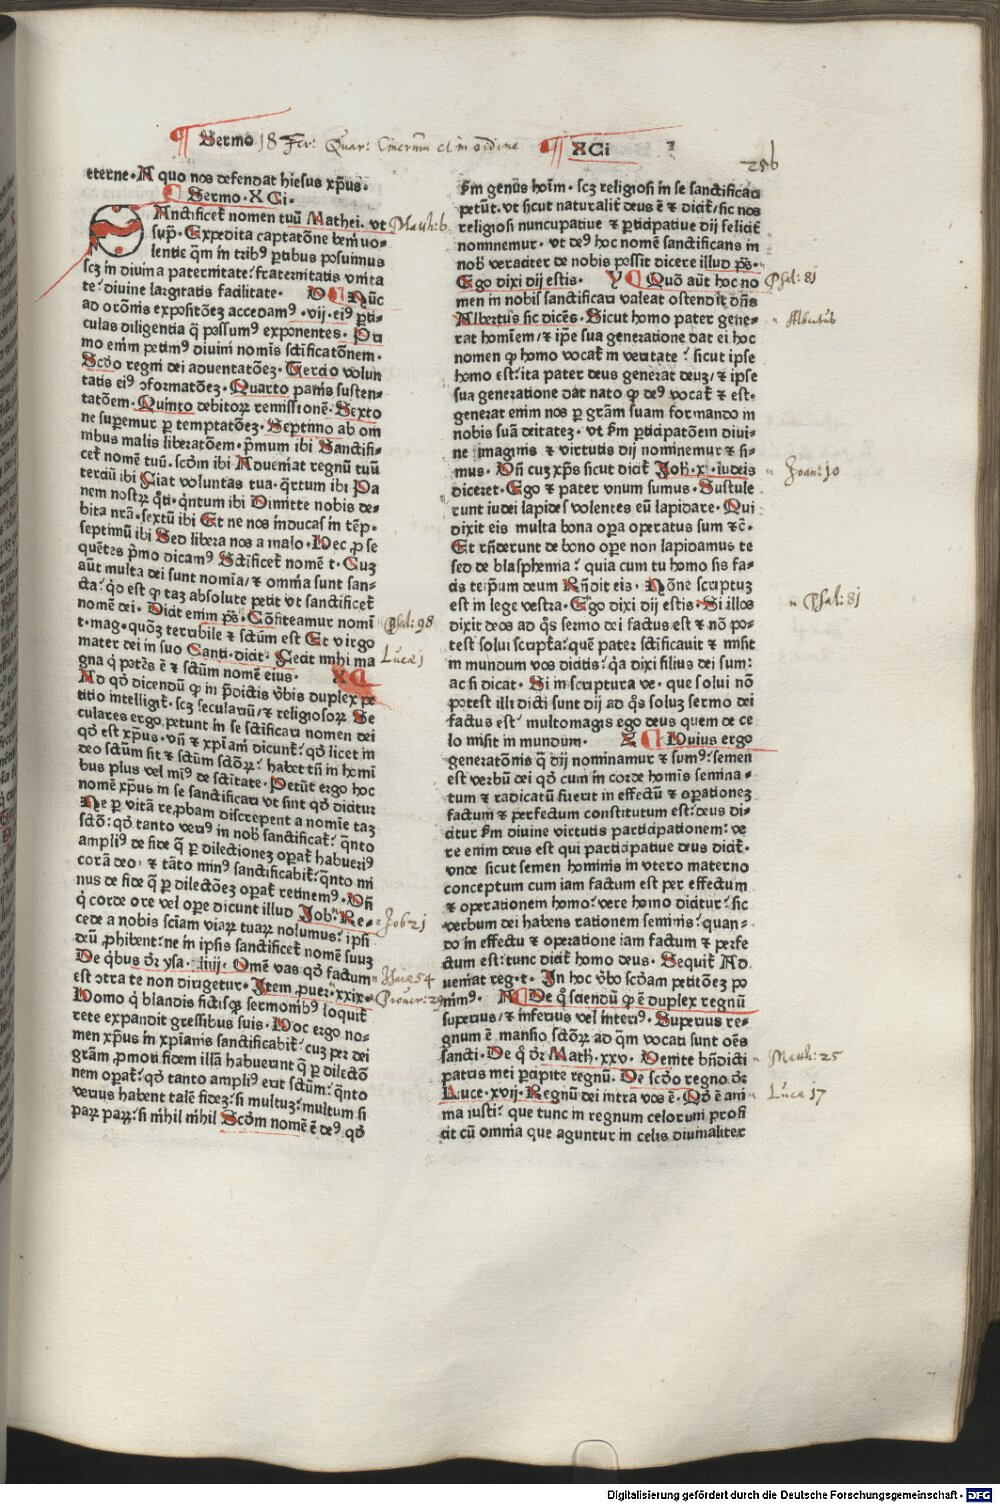 Sermo 18 XCi
256
eterne. A quo nos defendat hiesus xp̄us.
Sermo. XCi.
Anctificet̄ nomen tuū Mathei. vt
sup̄. Expedita captatōne beniuo-
lentie q̄m in trib⁹ p̱tibus posuimus
scꝫ in diuina paternitate: fraternitatis vnita
te: diuine largitatis facilitate. Nūc
ad orōnis expositōeꝫ accedam⁹. vij. ei⁹ p̱ti-
culas diligentia q̄ possum⁹ exponentes. Pri
mo enim petim⁹ diuini nomīs sctificatōnem.
Scd̄o regni dei aduentatōeꝫ. Tercio volun
tatis ei⁹ ↄformatōeꝫ. Quarto panis susten-
tatōem. Quinto debitoꝝ remissionē. Sexto
ne superemur p̱ temptatōeꝫ. Septimo ab om
nibus malis liberatōem. p̄mum ibi Sanctifi-
cet̄ nomē tuū. scd̄m ibi Adueniat regnū tuū
terciū ibi Fiat voluntas tua. q̄rtum ibi Pa
nem nostꝝ q̄ti. q̄ntum ibi Dimitte nobis de-
bita nr̄a. sextū ibi Et ne nos inducas in tēp.
septimū ibi Sed libera nos a malo. Nec ꝓ se
quētes p̄mo dicam⁹ Sctificet̄ nomē t. Cuꝫ
aūt multa dei sunt nomīa/ et omnīa sunt san-
cta: qd̓ est ꝙ taꝫ absolute petit vt sanctificet̄
nomē dei. Dicit enim ps̄. Cōfiteamur nomi
t. mag. quoꝫ terribile et sctūm est Et virgo
mater dei in suo Canti. dicit. Fecit mihi ma
gna q̄ potēs ē et sctūm nomē eius.
Ad qd̓ dicendū ꝙ in p̄dictis v̓bis duplex pe
titio intelligit̄. scꝫ seculariū/ et religiosoꝝ Se
culares ergo petunt in se sctificari nomen dei
qd̓ est xp̄us. vn̄ et xp̄iani dicunt̄: qd̓ licet in
deo sctūm sit et sctūm sctōꝝ: habet tn̄ in homi
bus plus vel min⁹ de sctitate. Petūt ergo hoc
nomē xp̄us in se sanctificari vt sint qd̓ dicitur
Ne p̱ vitā reꝓbam discrepent a nomīe taꝫ
sctō: qd̓ tanto veri⁹ in nob̄ sanctificat̄: q̄nto
ampli⁹ de fide q̄ p̱ dilectioneꝫ opat̄ habueri⁹
corā deo: et tāto min⁹ sanctificabit̄: q̄nto mi
nus de fide q̄ p̱ dilectōeꝫ opat̄ retinem⁹. Vn̄
q̄ corde ore vel ope dicunt illud Job. Re-
cede a nobis sciam viaꝝ tuaꝝ nolumus: ipsi
deū ꝓhibent: ne in ipsis sanctificet̄ nomē suuꝫ
De q̄bus dr̄ ysa. liiij. Omē vas qd̓ factum
est ↄtra te non dirigetur. Item ꝓuer. xxix.
Homo q̄ blandis fictisqꝫ sermonib⁹ loquit̄
rete expandit gressibus suis. Hoc ergo no-
men xp̄us in xp̄ianis sanctificabit̄: cuꝫ per dei
grām ꝓmoti fidem illā habuerūt q̄ p̱ dilectō
nem opat̄: qd̓ tanto ampli⁹ erit sctūm: q̄nto
verius habent talē fideꝫ: si multuꝫ: multum si
paꝝ paꝝ: si nihil nihil Scd̄m nomē ē de⁹ qd̓
Psal: 98
Luce 1
Job 21
Prouer: 29
ẜm genus hoīm. scꝫ religiosi in se sanctificari
petūt. vt sicut naturalit̄ deus ē et dicit̄/ sic nos
religiosi nuncupatiue et p̱ticipatiue dij felicit̄
nominemur. vt de⁹ hoc nomē sanctificans in
nob̄ veraciter de nobis possit dicere illud ps̄.
Ego dixi dij estis. Quō aūt hoc no
men in nobis sanctificari valeat ostendit dn̄s
Albertus sic dicēs. Sicut homo pater gene-
rat hominem/ et ip̄e sua generatione dat ei hoc
nomen ꝙ homo vocat̄ in veritate: sicut ipse
homo est: ita pater deus generat deuꝫ/ et ipse
sua generatione dat nato ꝙ de⁹ vocat̄ et est.
generat enim nos p̱ grām suam formando in
nobis suā deitateꝫ. vt ẜm p̱ticipatōem diui-
ne imaginis et virtutis dij nominemur et si-
mus. Vn̄ cuꝫ xp̄s sicut dicit̄ Joh. x. iudeis
diceret. Ego et pater vnum sumus. Sustule
runt iudei lapides volentes eū lapidare. Qui
dixit eis multa bona opa operatus sum etc̄.
Et rn̄derunt de bono ope non lapidamus te
sed de blasphemia: quia cum tu homo sis fa-
cis teip̄um deum Rn̄dit eis. Nōne scriptuꝫ
est in lege vestra. Ego dixi dij estis. Si illos
dixit deos ad q̄s sermo dei factus est et nō po-
test solui scrpt̄a: quē pater sctificauit et misit
in mundum vos dicitis: q̄a dixi filius dei sum:
ac si dicat. Si in scriptura ve. que solui nō
potest illi dicti sunt dij ad q̄s soluꝫ sermo dei
factus est: multomagis ego deus quem de ce
lo misit in mundum. Huius ergo
generatōnis q̄ dij nominamur et sum⁹: semen
est verbū dei qd̓ cum in corde homīs semina-
tum et radicatū fuerit in effectū et operationeꝫ
factum et perfectum constitutum est: deus di-
citur ẜm diuine virtutis participationem: ve
re enim deus est qui participatiue deus dicit̄.
vnde sicut semen hominis in vtero materno
conceptum cum iam factum est per effectum
et operationem homo: vere homo dicitur: sic
verbum dei habens rationem seminis: quan-
do in effectu et operatione iam factum et perfe
ctum est: tunc dicit̄ homo deus. Sequit̄ Ad
ueniat reg. t. In hoc v̓bo scd̄am petitōeꝫ po
nim⁹. De q̄ sciendū ꝙ ē duplex regnū
superius/ et inferius vel interi⁹. Superius re-
gnum ē mansio sctōꝝ ad q̄m vocati sunt oēs
sancti. De q̄ dr̄ Math. xxv. Venite bn̄dicti
patris mei p̱cipite regnū. De scd̄o regno dr̄
Luce. xvij. Regnū dei intra vos ē. Qd̓ ē ani
ma iusti: que tunc in regnum celorum profi
cit cū omnia que aguntur in celis diuinaliter
Psal: 81
Albertus
Joan: 10
Psal: 81
Math: 25
Luce 17
Digitalisierung gefördert durch die Deutsche Forschungsgemeinschaft - DFG